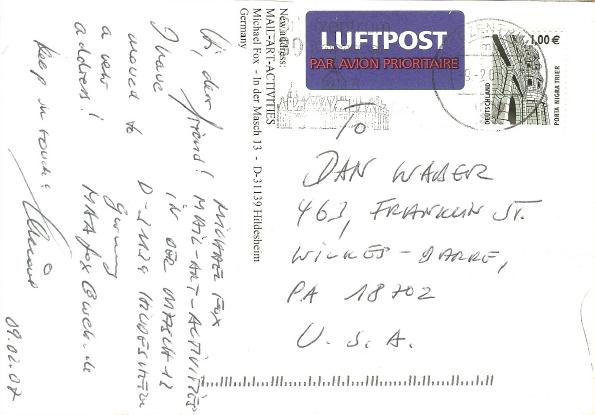 Hi, dear
friend!
I have
moved to
a new
address!
MICHAEL FOX
MAIL-ART-ACTIVITIES
IN DER MASCH 12
D-31139 HILDESHEIM
Germany
MAAfox@web.de
keep in touch!
09.02.07
New address:
MAIL-ART-ACTIVITIES
Michael Fox - In der Masch 13 - D-31139 Hildesheim
Germany
LUFTPOST
PAR AVION PRIORITAIRE
1,00 €
DEUTSCHLAND
PORTA NIGRA TRIER
To
DAN WABER
463, FRANKLIN ST.
WILKES-BARRE,
PA 18702
U.S.A.